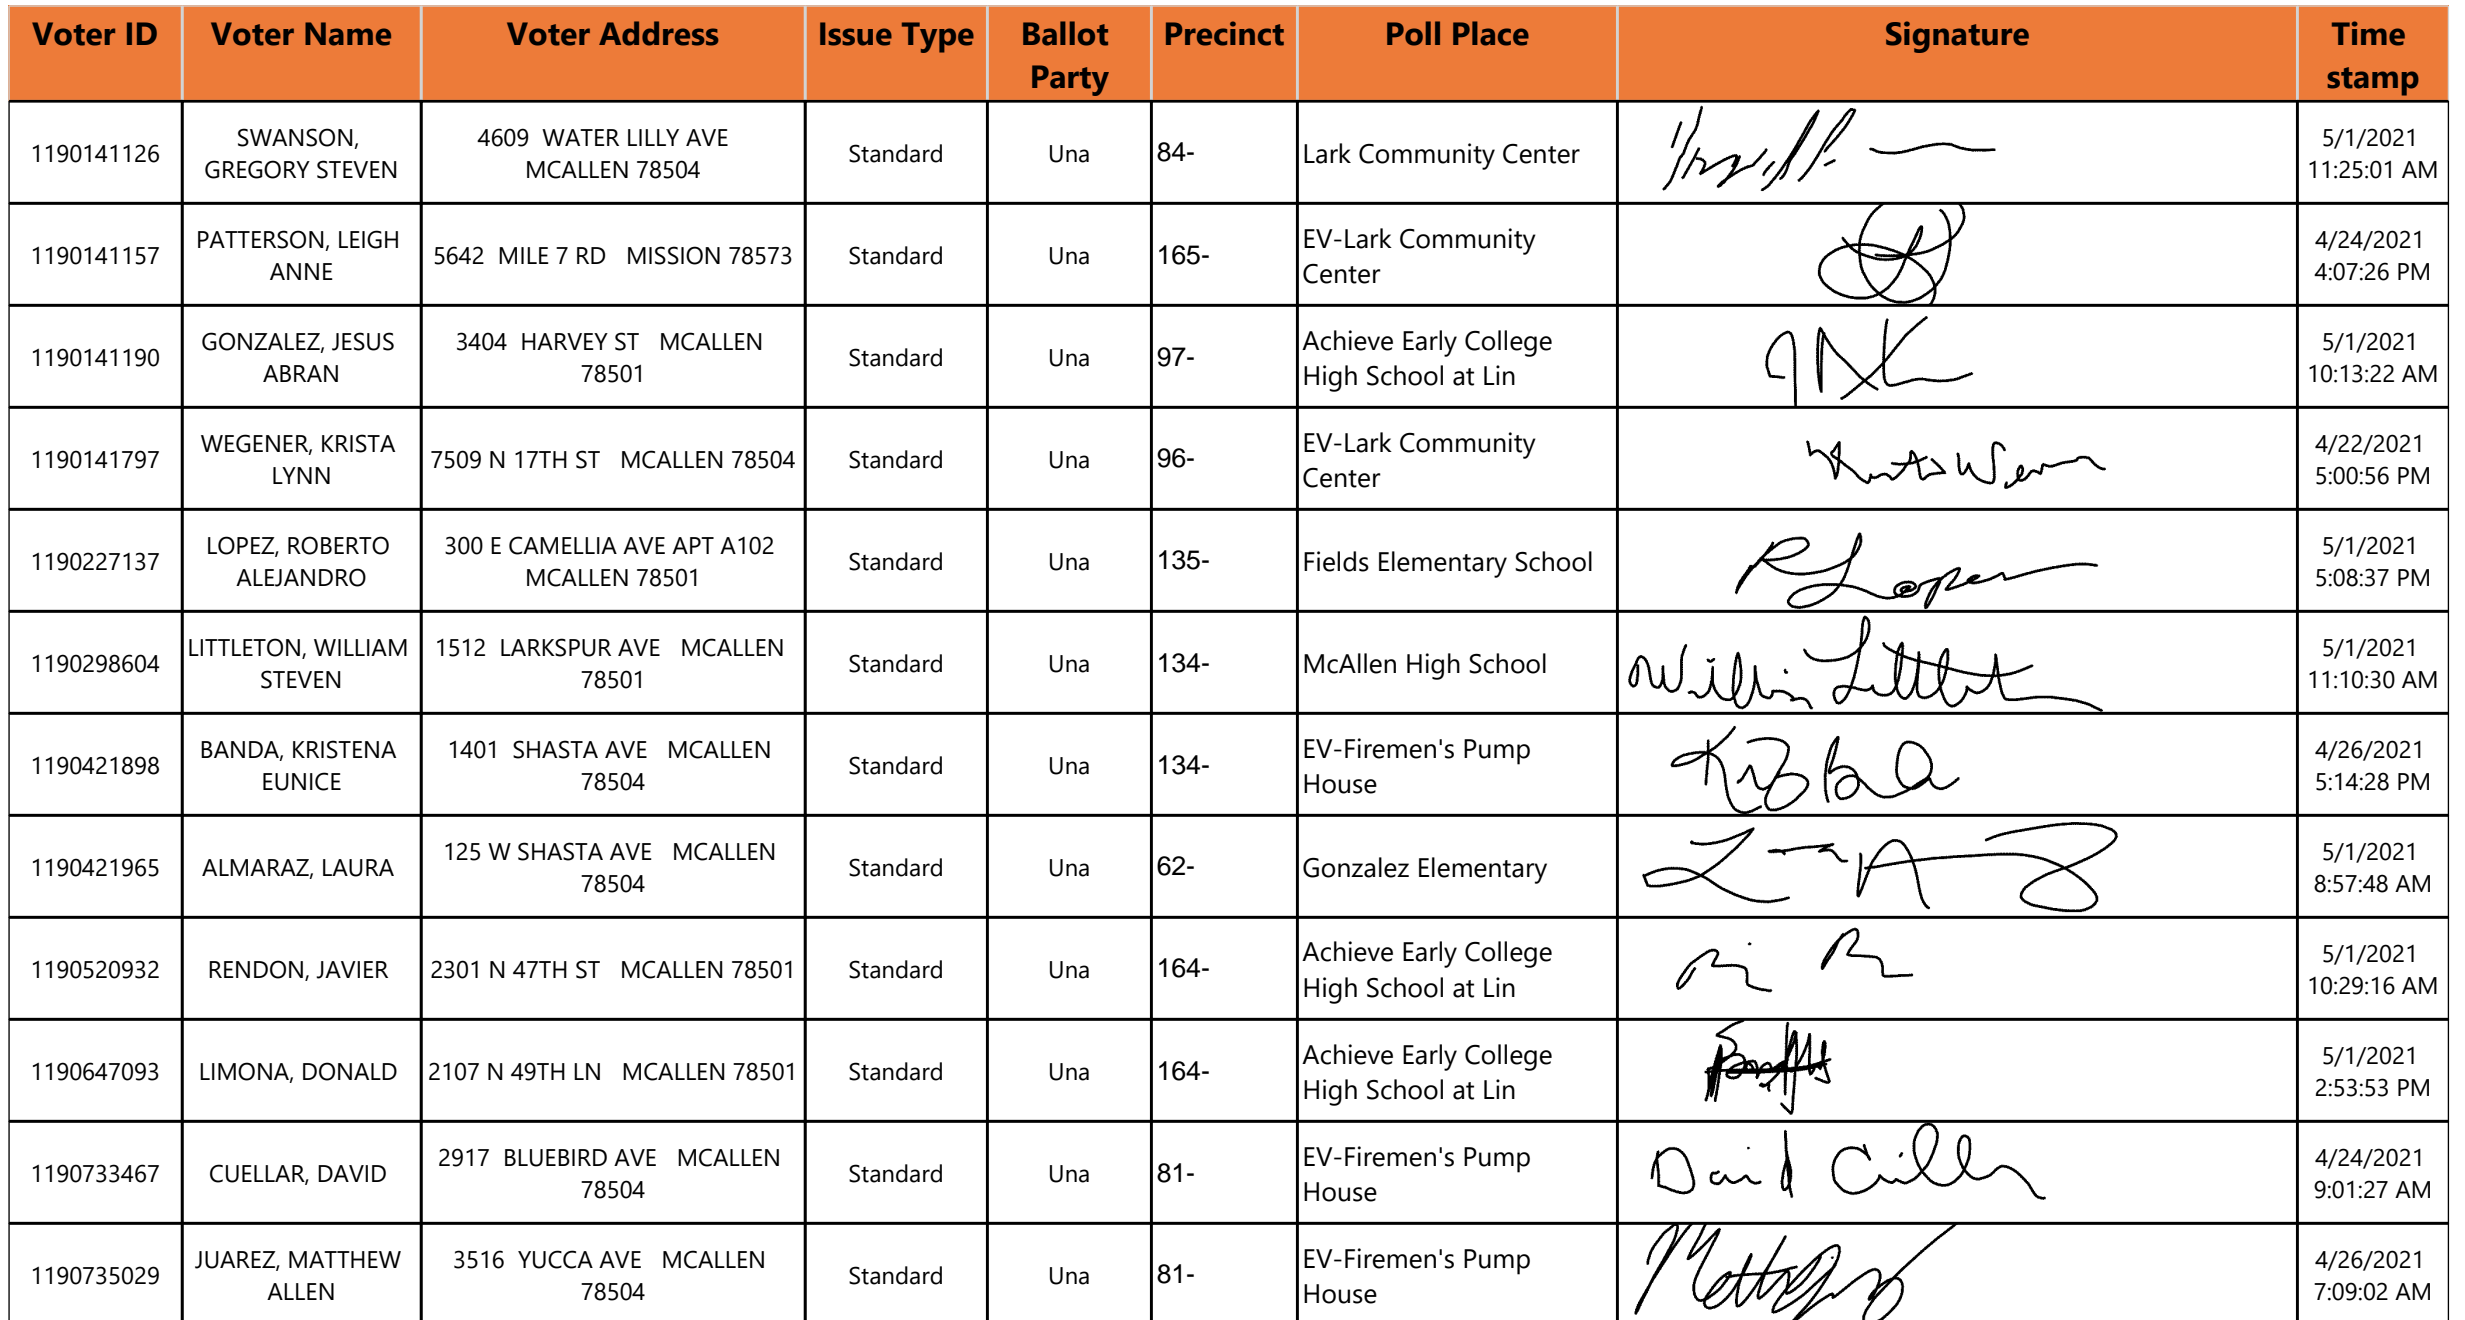 Voter ID Voter Name Voter Address Issue Type Ballot Party Precinct Poll Place Signature Time stamp
1190141126 SWANSON, GREGORY STEVEN 4609 WATER LILLY AVE MCALLEN 78504 Standard Una 84- Lark Community Center 5/1/2021 11:25:01 AM
1190141157 PATTERSON, LEIGH ANNE 5642 MILE 7 RD MISSION 78573 Standard Una 165- EV-Lark Community Center 4/24/2021 4:07:26 PM
1190141190 GONZALEZ, JESUS ABRAN 3404 HARVEY ST MCALLEN 78501 Standard Una 97- Achieve Early College High School at Lin 5/1/2021 10:13:22 AM
1190141797 WEGENER, KRISTA LYNN 7509 N 17TH ST MCALLEN 78504 Standard Una 96- EV-Lark Community Center 4/22/2021 5:00:56 PM
1190227137 LOPEZ, ROBERTO ALEJANDRO 300 E CAMELLIA AVE APT A102 MCALLEN 78501 Standard Una 135- Fields Elementary School R Lopez 5/1/2021 5:08:37 PM
1190298604 LITTLETON, WILLIAM STEVEN 1512 LARKSPUR AVE MCALLEN 78501 Standard Una 134- McAllen High School 5/1/2021 11:10:30 AM
1190421898 BANDA, KRISTENA EUNICE 1401 SHASTA AVE MCALLEN 78504 Standard Una 134- EV-Firemen's Pump House 4/26/2021 5:14:28 PM
1190421965 ALMARAZ, LAURA 125 W SHASTA AVE MCALLEN 78504 Standard Una 62- Gonzalez Elementary 5/1/2021 8:57:48 AM
1190520932 RENDON, JAVIER 2301 N 47TH ST MCALLEN 78501 Standard Una 164- Achieve Early College High School at Lin 5/1/2021 10:29:16 AM
1190647093 LIMONA, DONALD 2107 N 49TH LN MCALLEN 78501 Standard Una 164- Achieve Early College High School at Lin 5/1/2021 2:53:53 PM
1190733467 CUELLAR, DAVID 2917 BLUEBIRD AVE MCALLEN 78504 Standard Una 81- EV-Firemen's Pump House David Cuellar 4/24/2021 9:01:27 AM
1190735029 JUAREZ, MATTHEW ALLEN 3516 YUCCA AVE MCALLEN 78504 Standard Una 81- EV-Firemen's Pump House 4/26/2021 7:09:02 AM